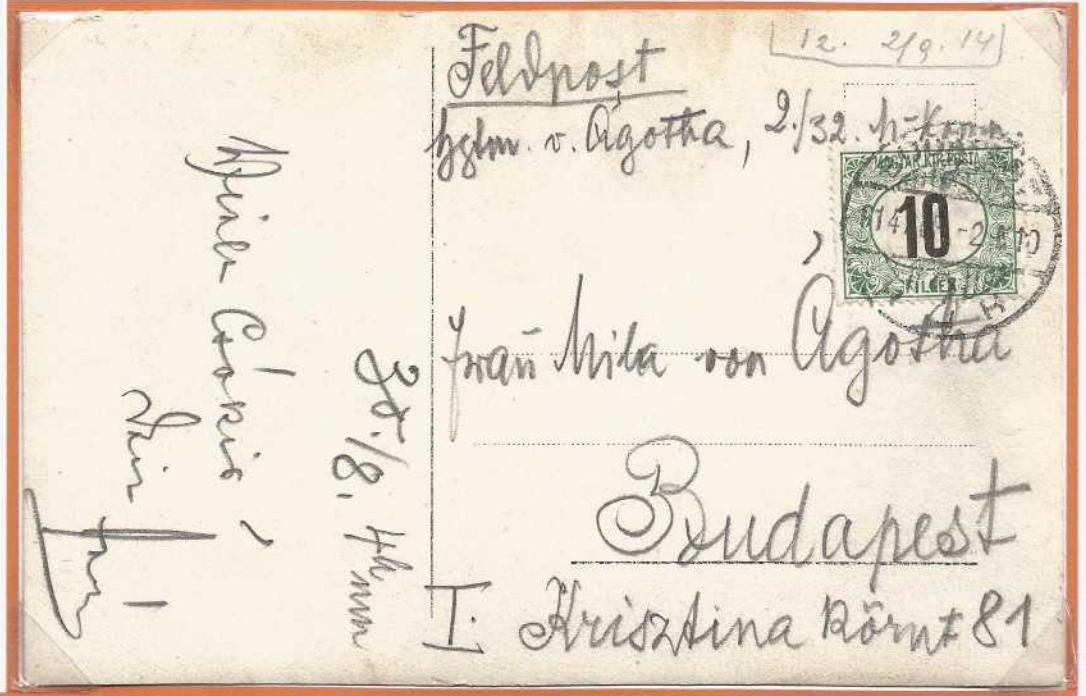 12. 2/9. 14
Feldpost
v. Ágotha, 2./32.
MAGYAR KIR. POSTA
10
FILLÉR
Frau Mila von Ágotha
Budapest
I. Krisztina körut 81
Viele Csókis
Dein